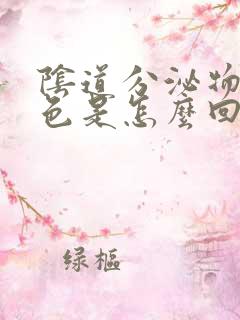 陰道分泌物
色是怎麼回
绿樞